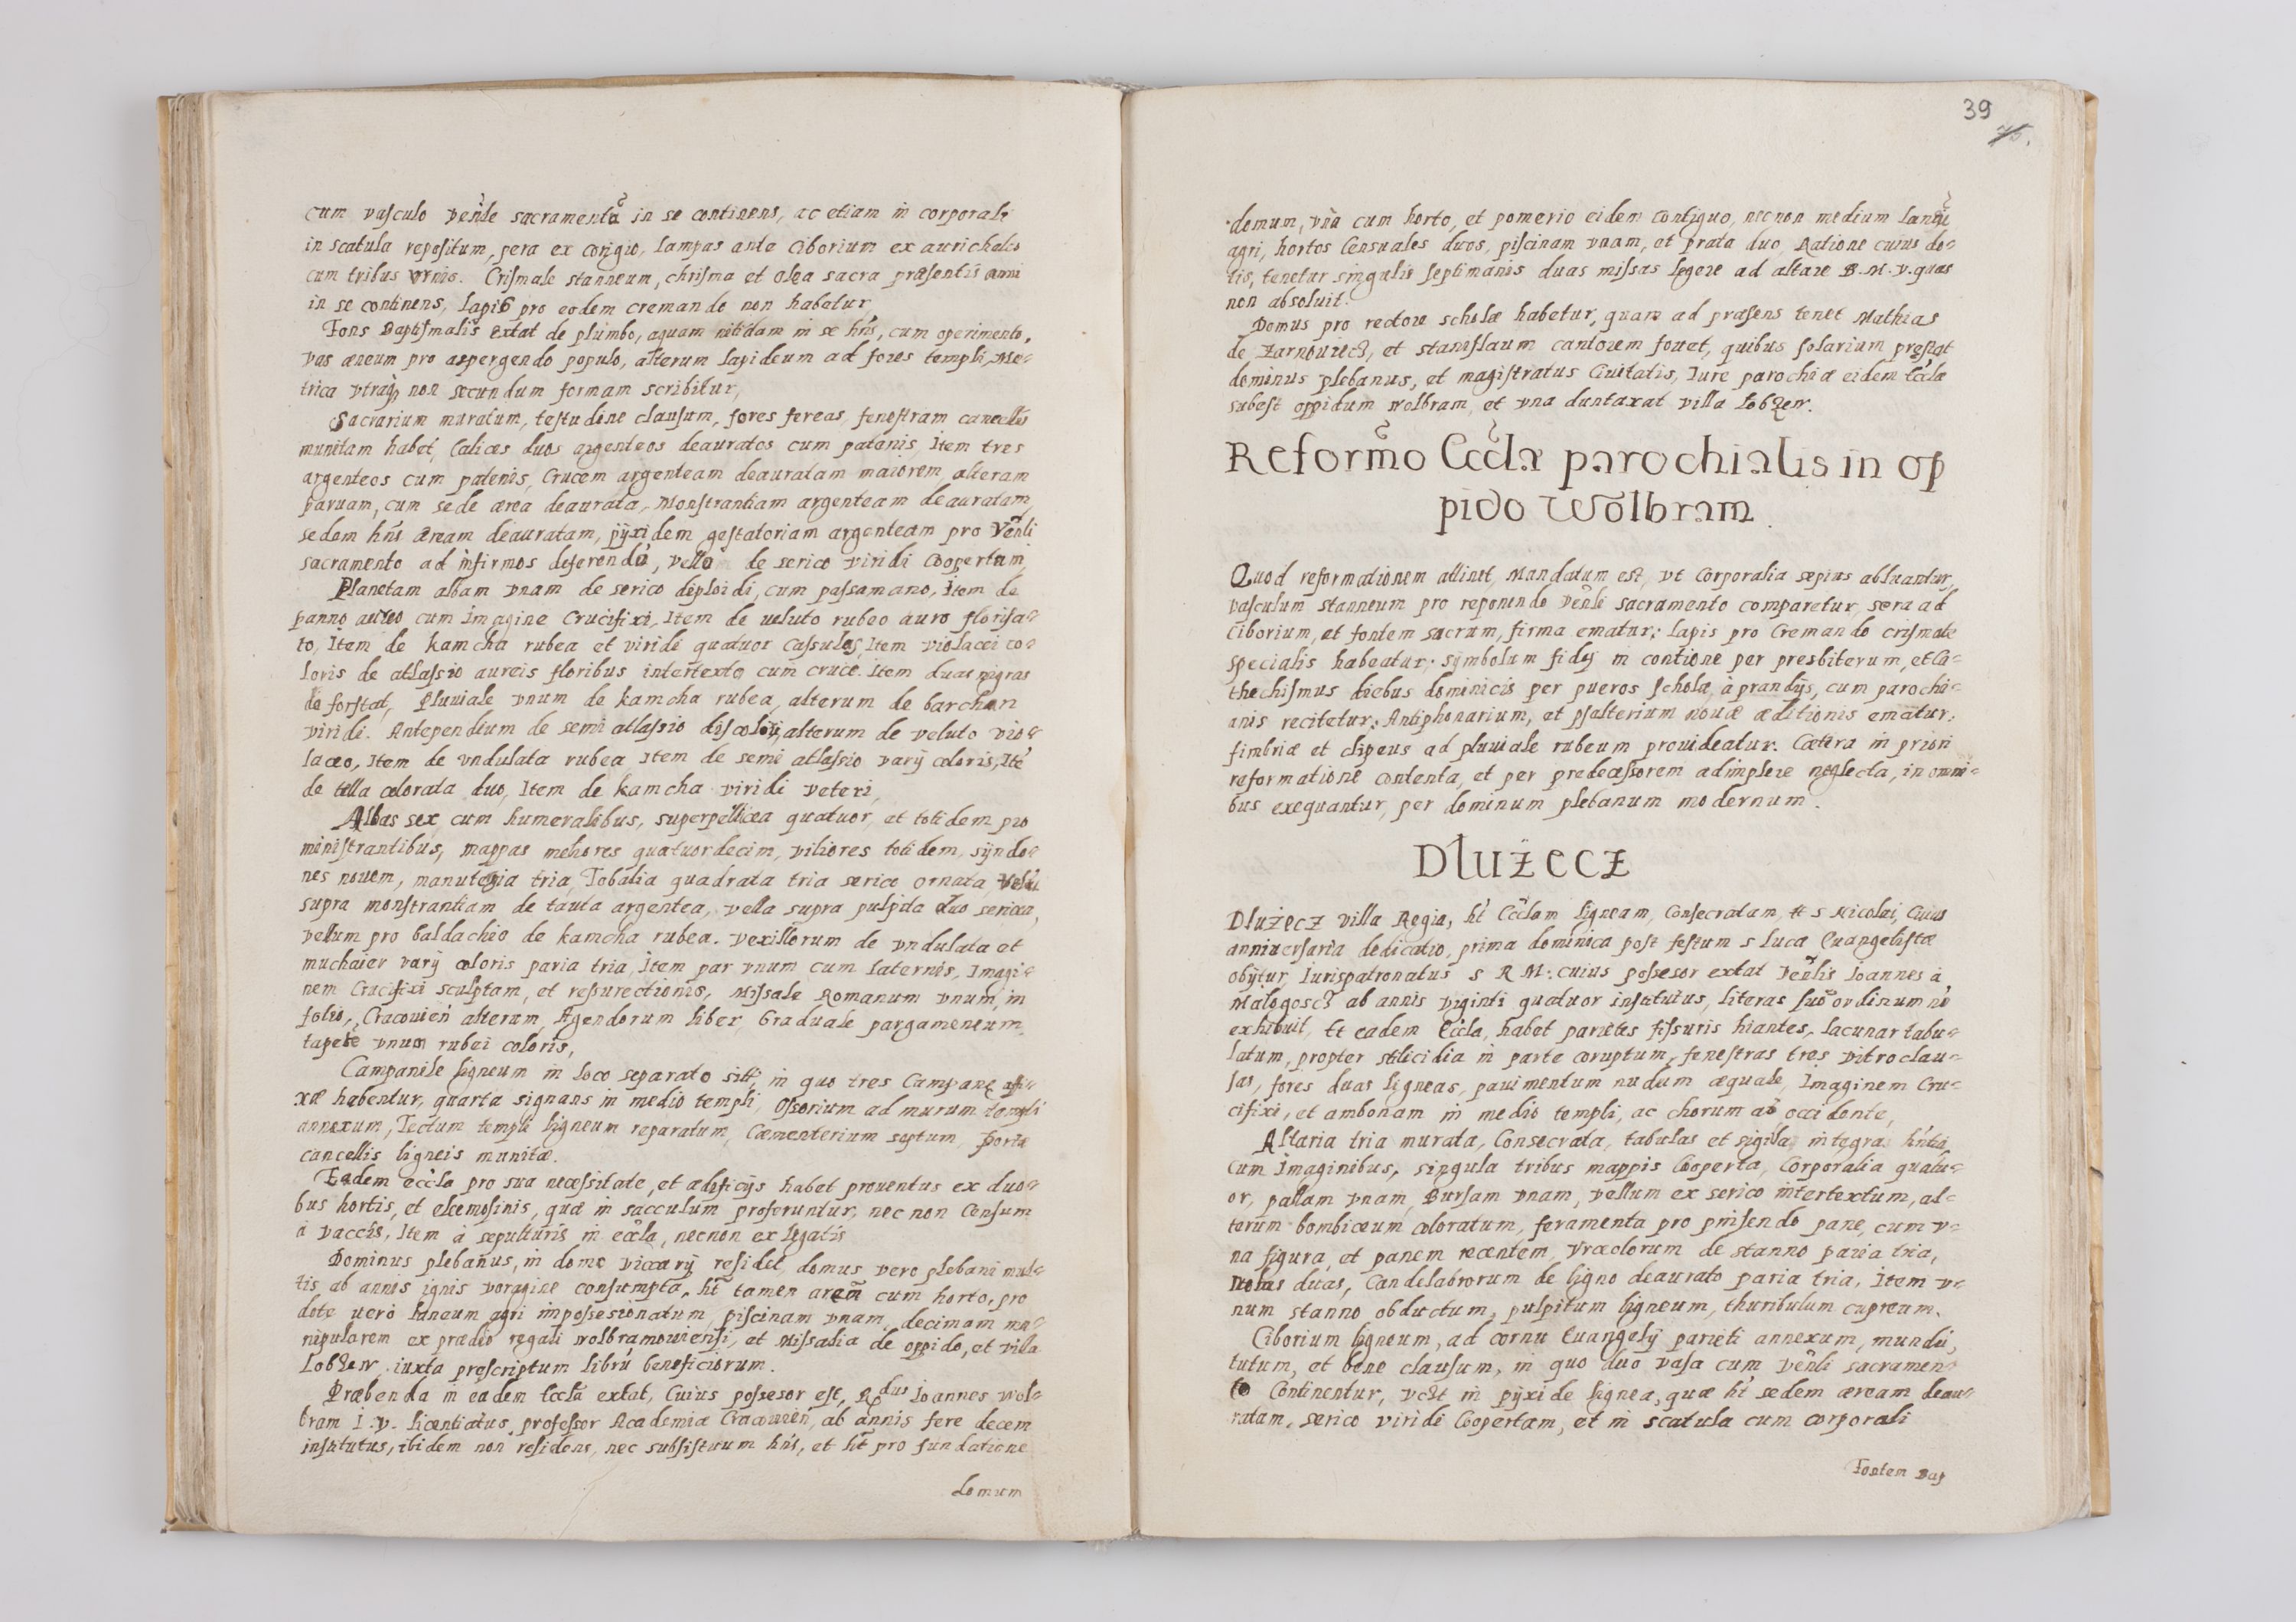 cum vasculo Venle sacramentũ in se continens, ac etiam in corporali
in scatula repositum, pera ex corigio, Lampas ante Ciborium ex aurichalco
cum tribus vrnis. Crismale stanneum, chrisma et olea sacra præsentis anni
in se continens, Lapis pro eodem cremando non habatur,
Fons Baptismalis extat de plumbo, aquam nitidam in se hñs, cum operimento,
vas æneum pro aspergendo populo, alterum lapideum ad fores templi, Me-
trica vtraq; non secundum formam scribitur,
Sacrarium muratum, testudine clausum, fores fereas, fenestram cancellis
munitam habet, Calices duos argenteos deauratos cum patenis, Item tres
argenteos cum patenis, Crucem argenteam deauratam maiorem, alteram
paruam, cum sede ærea deaurata, Monstrantiam argenteam deauratam,
sedem hñs æream deauratam, pÿxidem gestatoriam argenteam pro Venli
sacramento ad infirmos deferendũ, vello de serico viridi Coopertam,
Planetam albam vnam de serico diploidi, cum passamano, Item de
panno aureo cum Imagine Crucifixi, Item de ueluto rubeo auro florisa-
to, Item de kamcha rubea et viridi quatuor Cassulas, Item violacei co-
loris de atlassio aureis floribus intertexto cum cruce. Item duas nigras
de forstat, Pluuiale vnum de kamcha rubea, alterum de barchan
viridi. Antependium de semi atlassio discolori, alterum de veluto vio-
laceo, Item de vndulata rubea Item de semi atlassio varÿ coloris, Ité
de tella colorata duo, Item de kamcha viridi veteri,
Albas sex cum humeralibus, superpellicea quatuor, et totidem pro
ministrantibus, mappas meliores quatuordecim, viliores totidem, sÿndo-
nes nouem, manutergia tria, Tobalia quadrata tria serico ornata, Velũ
supra monstrantiam de tauta argentea, vella supra pulpita duo sericea,
vellum pro baldachio de kamcha rubea. Vexillorum de vndulata et
muchaier varÿ coloris paria tria, Item par vnum cum laternis, Imagi-
nem Crucifixi sculptam, et resurectionis, Missale Romanum vnum, in
folio, Cracouień alteram, Agendorum liber, Graduale pargameneum,
tapete vnum rubei coloris,
Campanile ligneum in loco separato siti, in quo tres Campane affi-
xæ habentur, quarta signans in medio templi, Ossorium ad murum templi
annexum, Tectum templi ligneum reparatum, Cæmenterium septum, portæ
cancellis ligneis munitæ.
Eadem eccla pro sua necessitate, et ædificÿs habet prouentus ex duo-
bus hortis, et elcemosinis, quæ in sacculum proferuntur, nec non Censum
à vaccis, Item à sepulturis in eccla, necnon ex legatis
Dominus plebanus, in domo vicarÿ residet, domus vero plebani mul-
tis ab annis ignis voragine consumpta, ht tamen aream cum horto, pro
dote uero laneum agri impossesionatum, piscinam vnam, decimam ma-
nipularem ex prædio regali wolbramouiensi, et Missalia de oppido, et villa
Lobzew iuxta prescriptum librũ beneficiorum.
Præbenda in eadem Eccla extat, Cuius possesor est, Rdus Ioannes wol-
bram I. V. licentiatus, professor Academiæ Cracouień, ab annis fere decem
institutus, ibidem non residens, nec subsistuum hñs, et ht pro fundatione
domum
39
domum, vna cum horto, et pomerio eidem contiguo, necnon medium laneũ
agri, hortos Censuales duos, piscinam vnam, et prata duo, Ratione cuius do-
tis, tenetur singulis septimanis duas missas legere ad altare B. M. V. quas
non absoluit.
Domus pro rectore scholæ habetur, quam ad præsens tenet Mathias
de Żarnouiecz, et stanislaum cantorem fouet, quibus solarium prestat
dominus plebanus, et magistratus Ciuitatis, Iure parochiæ eidem Eccla
subest oppidum wolbram, et vna duntaxat villa Lobzew.
Reformo Ecclæ parochialis in op
pido Wolbram.
Quod reformationem attinet, Mandatum est, vt Corporalia sepius abluantur,
vasculum stanneum pro reponendo Venli sacramento comparetur, sera ad
Ciborium, et fontem sacrum, firma ematur: Lapis pro Cremando crismate
specialis habeatur: sÿmbolum fidej in contione per presbiterum, et Ca-
thechismus diebus dominicis per pueros scholæ, à prandÿs, cum parochi-
anis recitetur: Antiphonarium, et psalterium nouæ æditionis ematur:
fimbriæ et clipeus ad pluuiale rubeum prouideatur: Cætera in priori
reformatione contenta, et per predecessorem adimplere neglecta, in omni-
bus exequantur, per dominum plebanum modernum.
Dlużecz
Dlużecz villa Regia, ht Ecclam ligneam, Consecratam, tt S Nicolai, Cuius
anniuersaria dedicatio, prima dominica post festum S Lucæ Euangelistæ
obÿtur, Iurispatronatus S R M: cuius possesor extat Venlis Ioannes à
Małogoscz ab annis viginti quatuor institutus, literas suorordinum nõ
exhibuit, Et eadem Eccla, habet parietes fissuris hiantes, lacunar tabu-
latum, propter stilicidia in parte coruptum, fenestras tres vitro clau-
sas, fores duas ligneas, pauimentum nudum æquale, Imaginem Cru-
cifixi, et ambonam in medio templi, ac chorum ab occidente,
Altaria tria murata, Consecrata, tabulas et sigilla integra hñtia,
cum Imaginibus, singula tribus mappis Cooperta, Corporalia quatu-
or, pallam vnam, Bursam vnam, vellum ex serico intertextum, al-
terum bombiceum coloratum, feramenta pro pinsendo pane, cum v-
na figura, et panem recentem, Vrceolorum de stanno paria tria,
Nolas duas, Candelabrorum de ligno deaurato paria tria, Item v-
num stanno obductum, pulpitum ligneum, thuribulum cupreum.
Ciborium ligneum, ad cornu Euangelÿ parieti annexum, mundũ,
tutum, et bene clausum, in quo duo vasa cum Venli sacramen-
to Continentur, vczt in pÿxide lignea, quæ ht sedem æream deau-
ratam, serico viridi Coopertam, et in scatula cum corporali
Fontem Bap